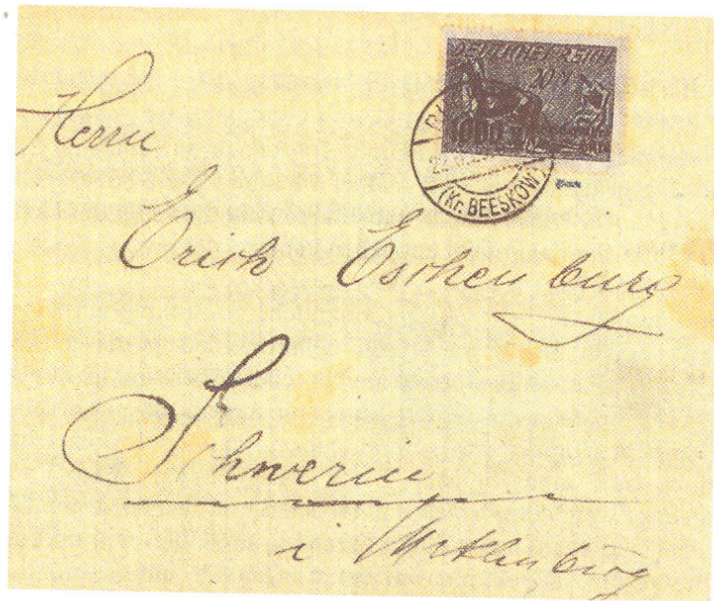 DEUTSCHES REICH
1000
(Kr. BEESKOW)
Herrn
Erich Eschenburg
Schwerin
i Meklenburg